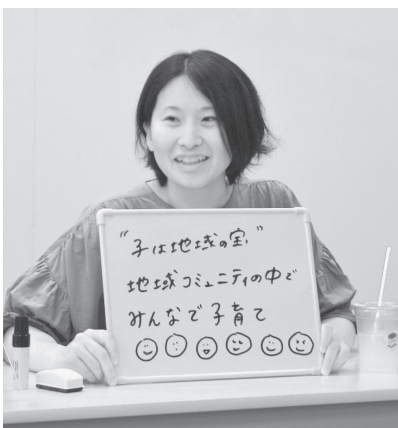 “子は地域の宝”
地域コミュニティの中で
みんなで子育て